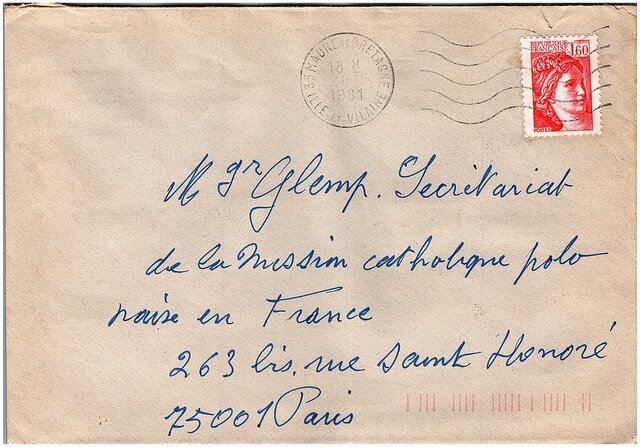 35 MAURE DE BRETAGNE
18 H
1981
ILLE-ET-VILAINE
REPUBLIQUE
FRANÇAISE
1,60
POSTES
Mgr Glemp. Secrétariat
de la Mission catholique polo
naise en France
263 bis. rue Saint Honoré
75001 Paris